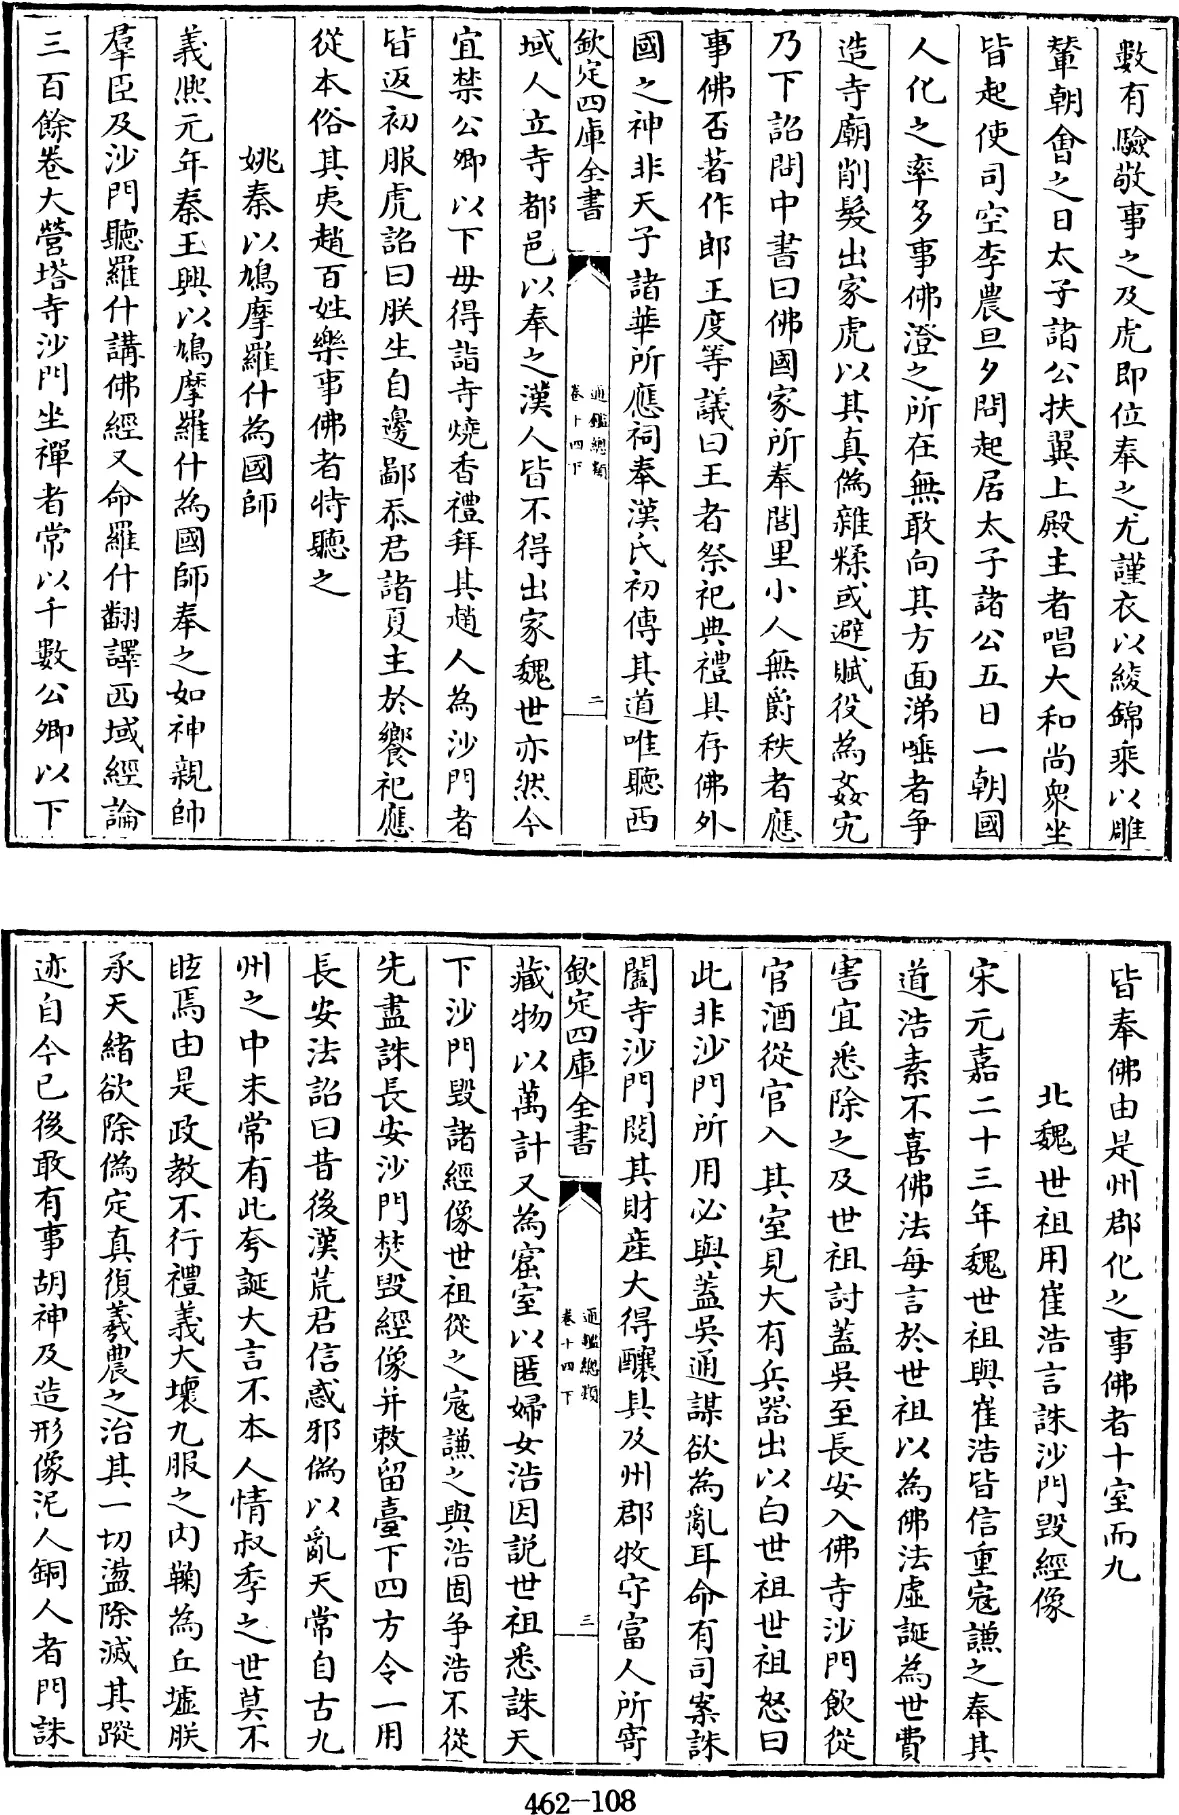 數有驗敬事之及虎即位奉之尤謹衣以綾錦乘以雕
輦朝㑹之日太子諸公扶翼上殿主者唱大和尚衆坐
皆起使司空李農旦夕問起居太子諸公五日一朝國
人化之率多事佛澄之所在無敢向其方面涕唾者争
造寺廟削髮出家虎以其真偽雜糅或避賦役為姦宄
乃下詔問中書曰佛國家所奉閭里小人無爵秩者應
事佛否著作郎王度等議曰王者祭祀典禮具存佛外
國之神非天子諸華所應祠奉漢氏初傳其道唯聽西
欽定四庫全書
通鑑總類
卷十四下
二
域人立寺都邑以奉之漢人皆不得出家魏世亦然今
宜禁公卿以下毋得詣寺燒香禮拜其趙人為沙門者
皆返初服虎詔曰朕生自邊鄙忝君諸夏主於饗祀應
從本俗其夷趙百姓樂事佛者特聽之
姚秦以鳩摩羅什為國師
義熙元年秦王興以鳩摩羅什為國師奉之如神親帥
羣臣及沙門聽羅什講佛經又命羅什翻譯西域經論
三百餘卷大營塔寺沙門坐禪者常以千數公卿以下
皆奉佛由是州郡化之事佛者十室而九
北魏世祖用崔浩言誅沙門毀經像
宋元嘉二十三年魏世祖與崔浩皆信重寇謙之奉其
道浩素不喜佛法每言於世祖以為佛法虛誕為世費
害宜悉除之及世祖討蓋吳至長安入佛寺沙門飲從
官酒從官入其室見大有兵器出以白世祖世祖怒曰
此非沙門所用必與蓋吳通謀欲為亂耳命有司案誅
闔寺沙門閱其財產大得釀具及州郡牧守富人所寄
欽定四庫全書
通鑑總類
卷十四下
三
藏物以萬計又為窟室以匿婦女浩因説世祖悉誅天
下沙門毀諸經像世祖從之寇謙之與浩固争浩不從
先盡誅長安沙門焚毀經像并敕留臺下四方令一用
長安法詔曰昔後漢荒君信惑邪偽以亂天常自古九
州之中未常有此夸誕大言不本人情叔季之世莫不
眩焉由是政教不行禮義大壞九服之内鞠為丘墟朕
承天緒欲除偽定真復羲農之治其一切盪除滅其蹤
迹自今已後敢有事胡神及造形像泥人銅人者門誅
462-108